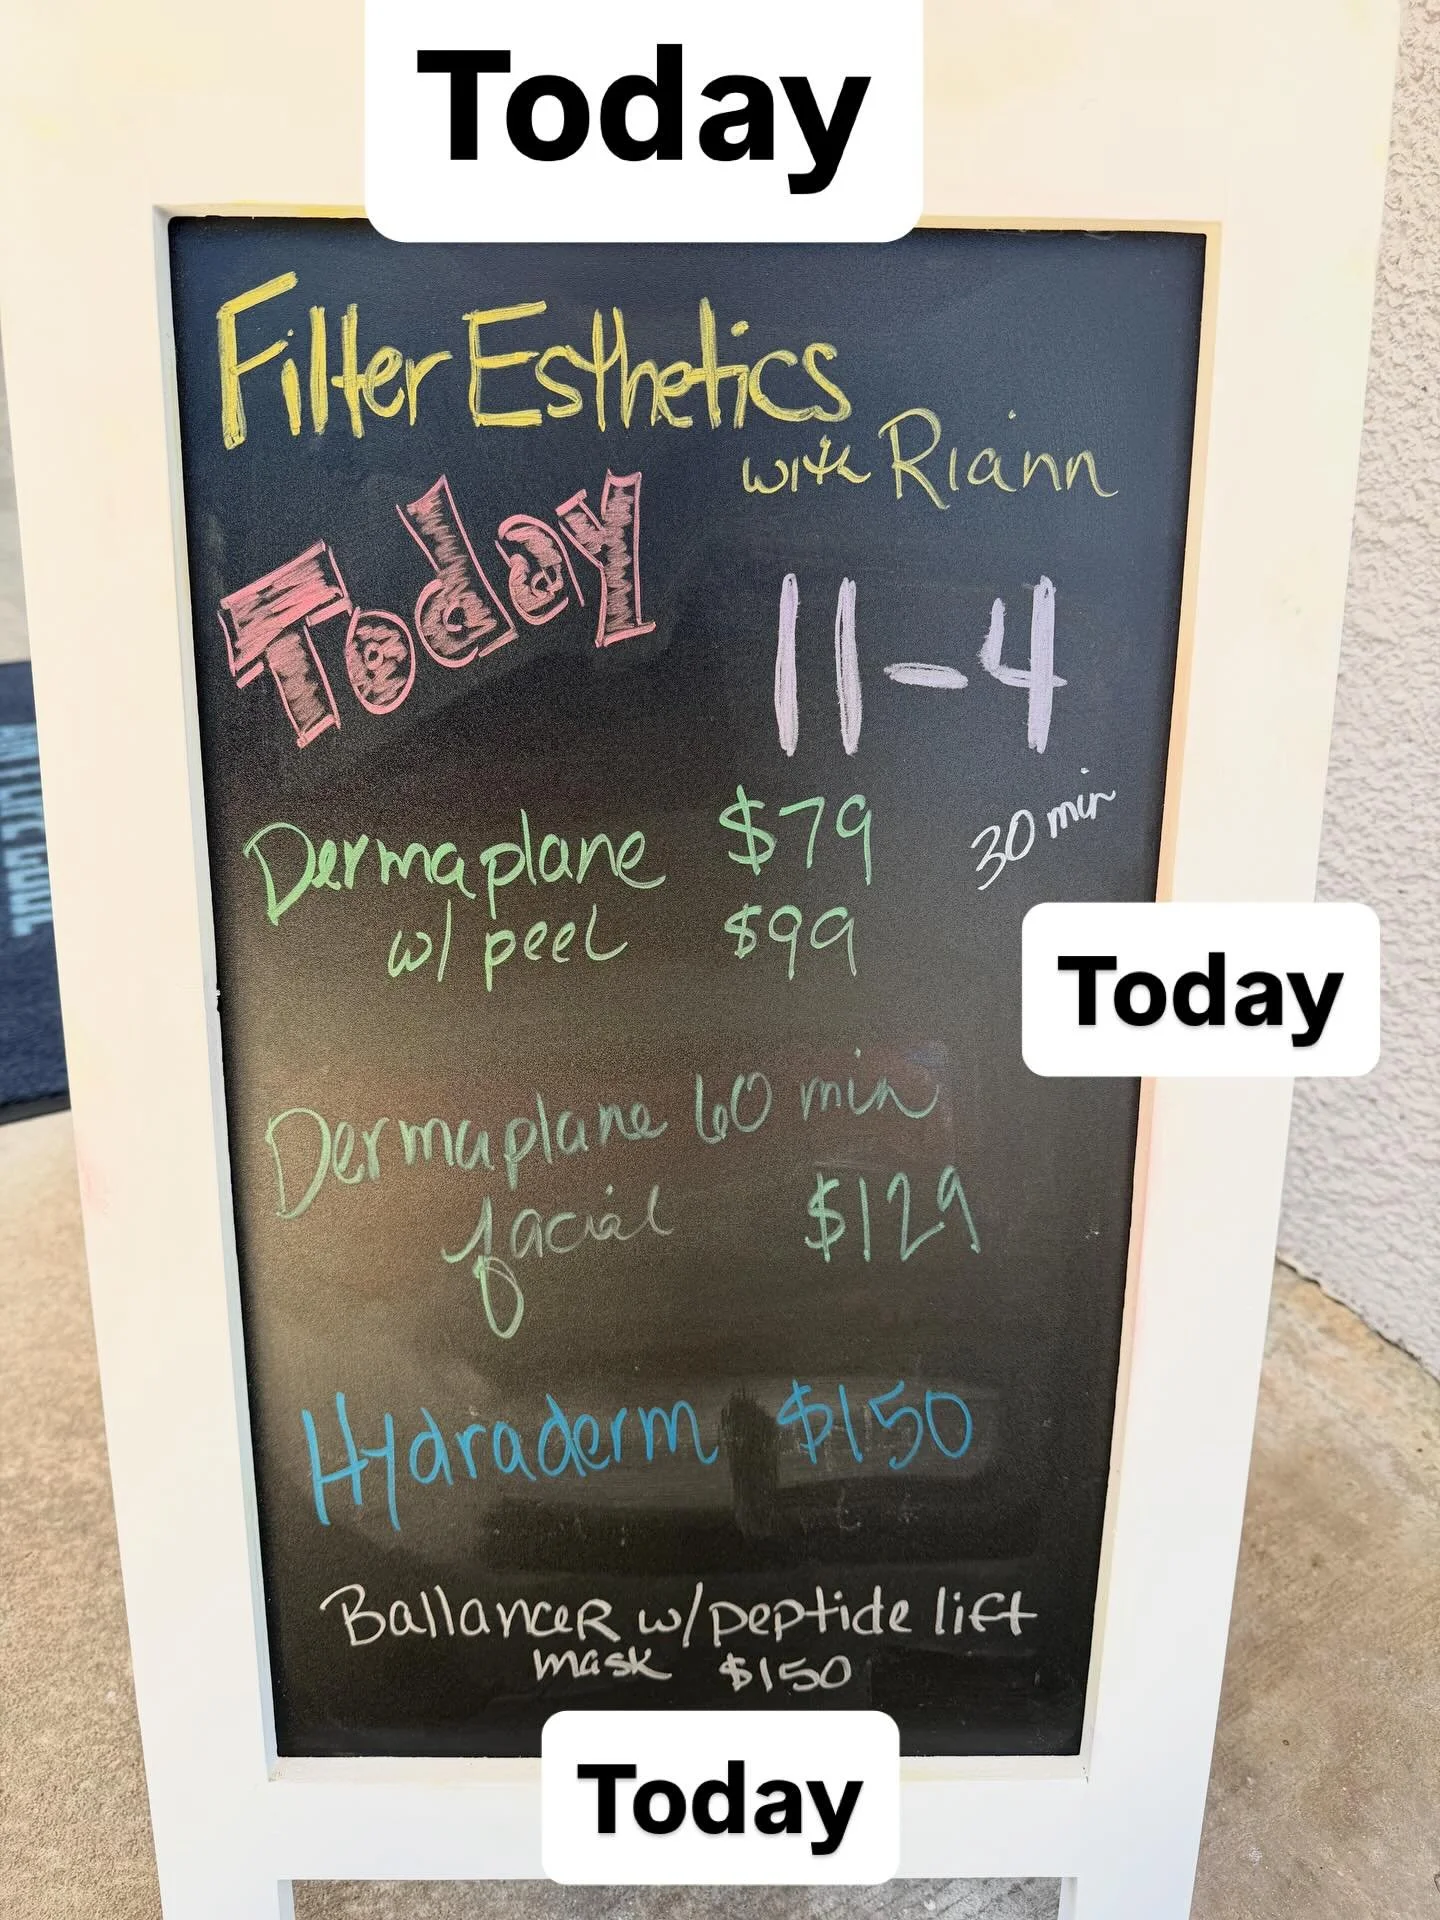 Today
Filter Esthetics
with Riann
Today 11-4
Dermaplane $79 30 min
w/ peel $99
Today
Dermaplane 60 min
facial $129
Hydraderm $150
Ballancer w/peptide lift
mask $150
Today